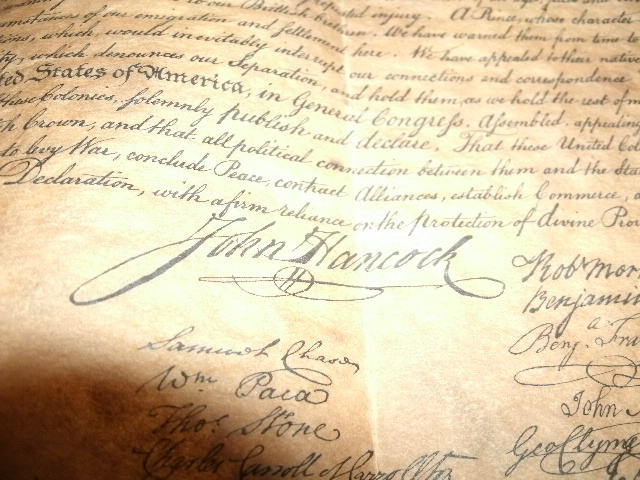 to our Brittish brethren.
repeated injury. A Prince, whose character
of our emigration and settlement here. We have warned them from time to
which would inevitably interrupt our connections and correspondence
We have appealed to their native
which denounces our Separation, and hold them, as we hold the rest of
States of America, in General Congress, Assembled, appealing
these Colonies, solemnly publish and declare, That these United Col
Crown, and that all political connection between them and the Sta
to levy War, conclude Peace, contract Alliances, establish Commerce,
Declaration, with a firm reliance on the protection of divine Prov
John Hancock
Robt Morr
Benjamin
Benj. Fra
Samuel Chase
Wm. Paca
Thos. Stone
Charles Carroll of Carrollton
John
Geo Clyme